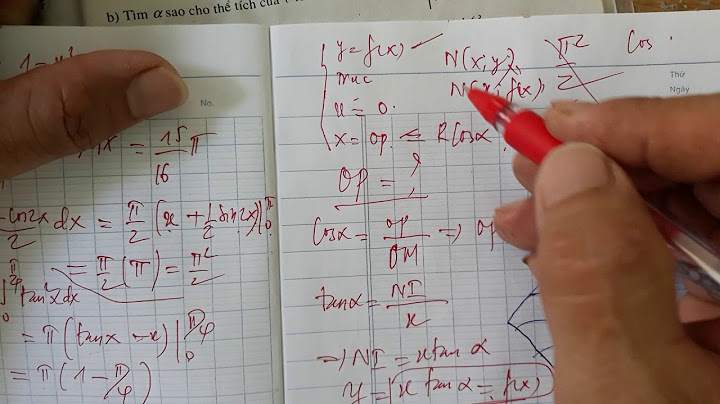 b) Tìm α sao cho thể tích của
No.
= 15/16 π
cos2x/2 dx = π/2 (x + 1/2 sin2x)|
= π/2 (π) = π²/2
tan²x dx
= π(tanx - x)| π/4 0
= π(1 - π/4)
y = f(x)
x = 0.
x = OP = R cosα
OP = ?
N(x; y)
N(x; f(x))
π²/2
Cos
Thứ
Ngày
Cosα = OP/OM => OP
tanα = NI/x
=> NI = x tanα
y = x tanα = f(x)